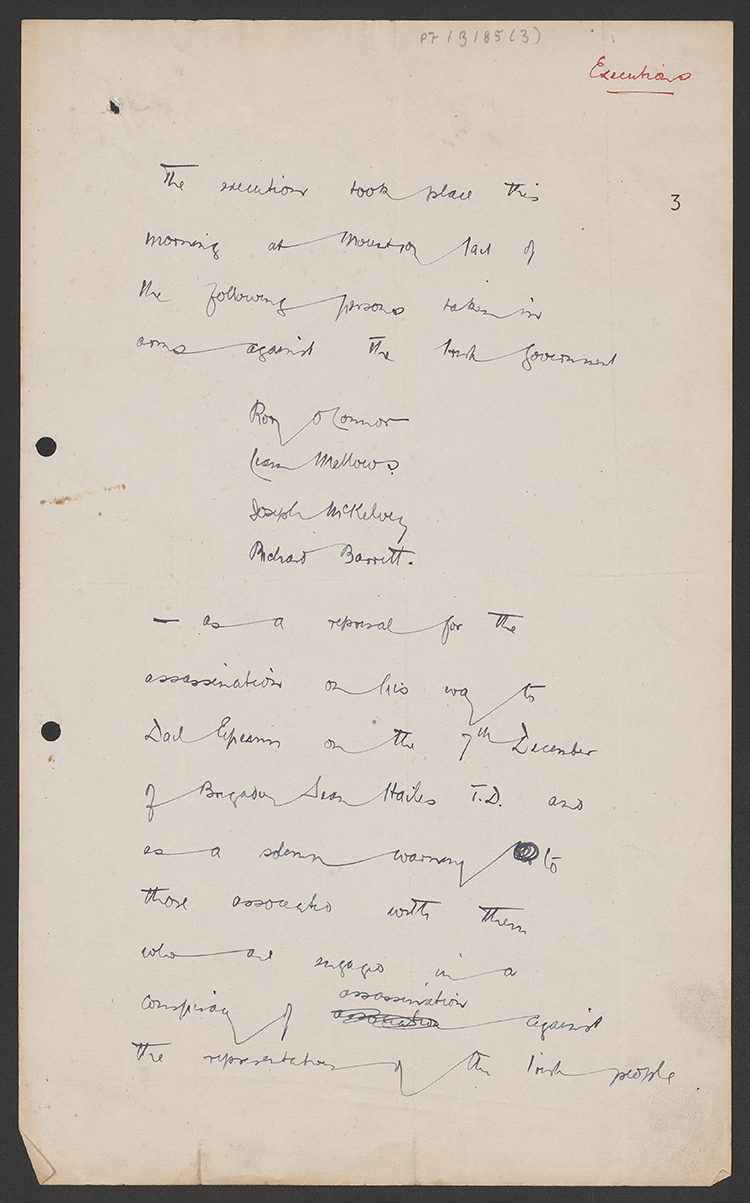 P7/B/85(3)
Executions
3
The executions took place this
morning at Mountjoy Jail of
the following persons taken in
arms against the Irish Government
Rory O'Connor
Liam Mellows.
Joseph McKelvey
Richard Barrett.
– as a reprisal for the
assassination on his way to
Dail Eireann on the 7th December
of Brigadier Sean Hales T.D. and
as a solemn warning to
those associated with them
who are engaged in a
conspiracy of assassination against
the representatives of the Irish people